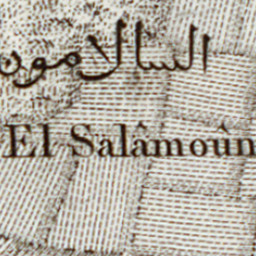 السالامون
El Salâmoûn